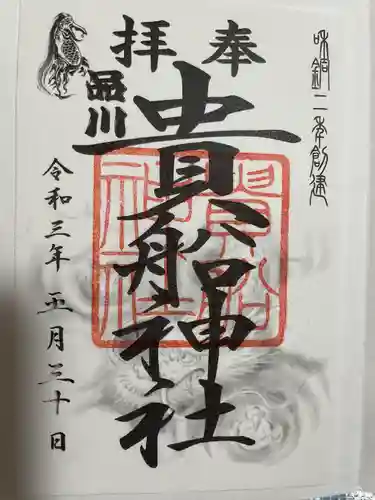 和銅二年創建
奉拝
品川
貴船神社
貴船
神社
令和三年五月三十日